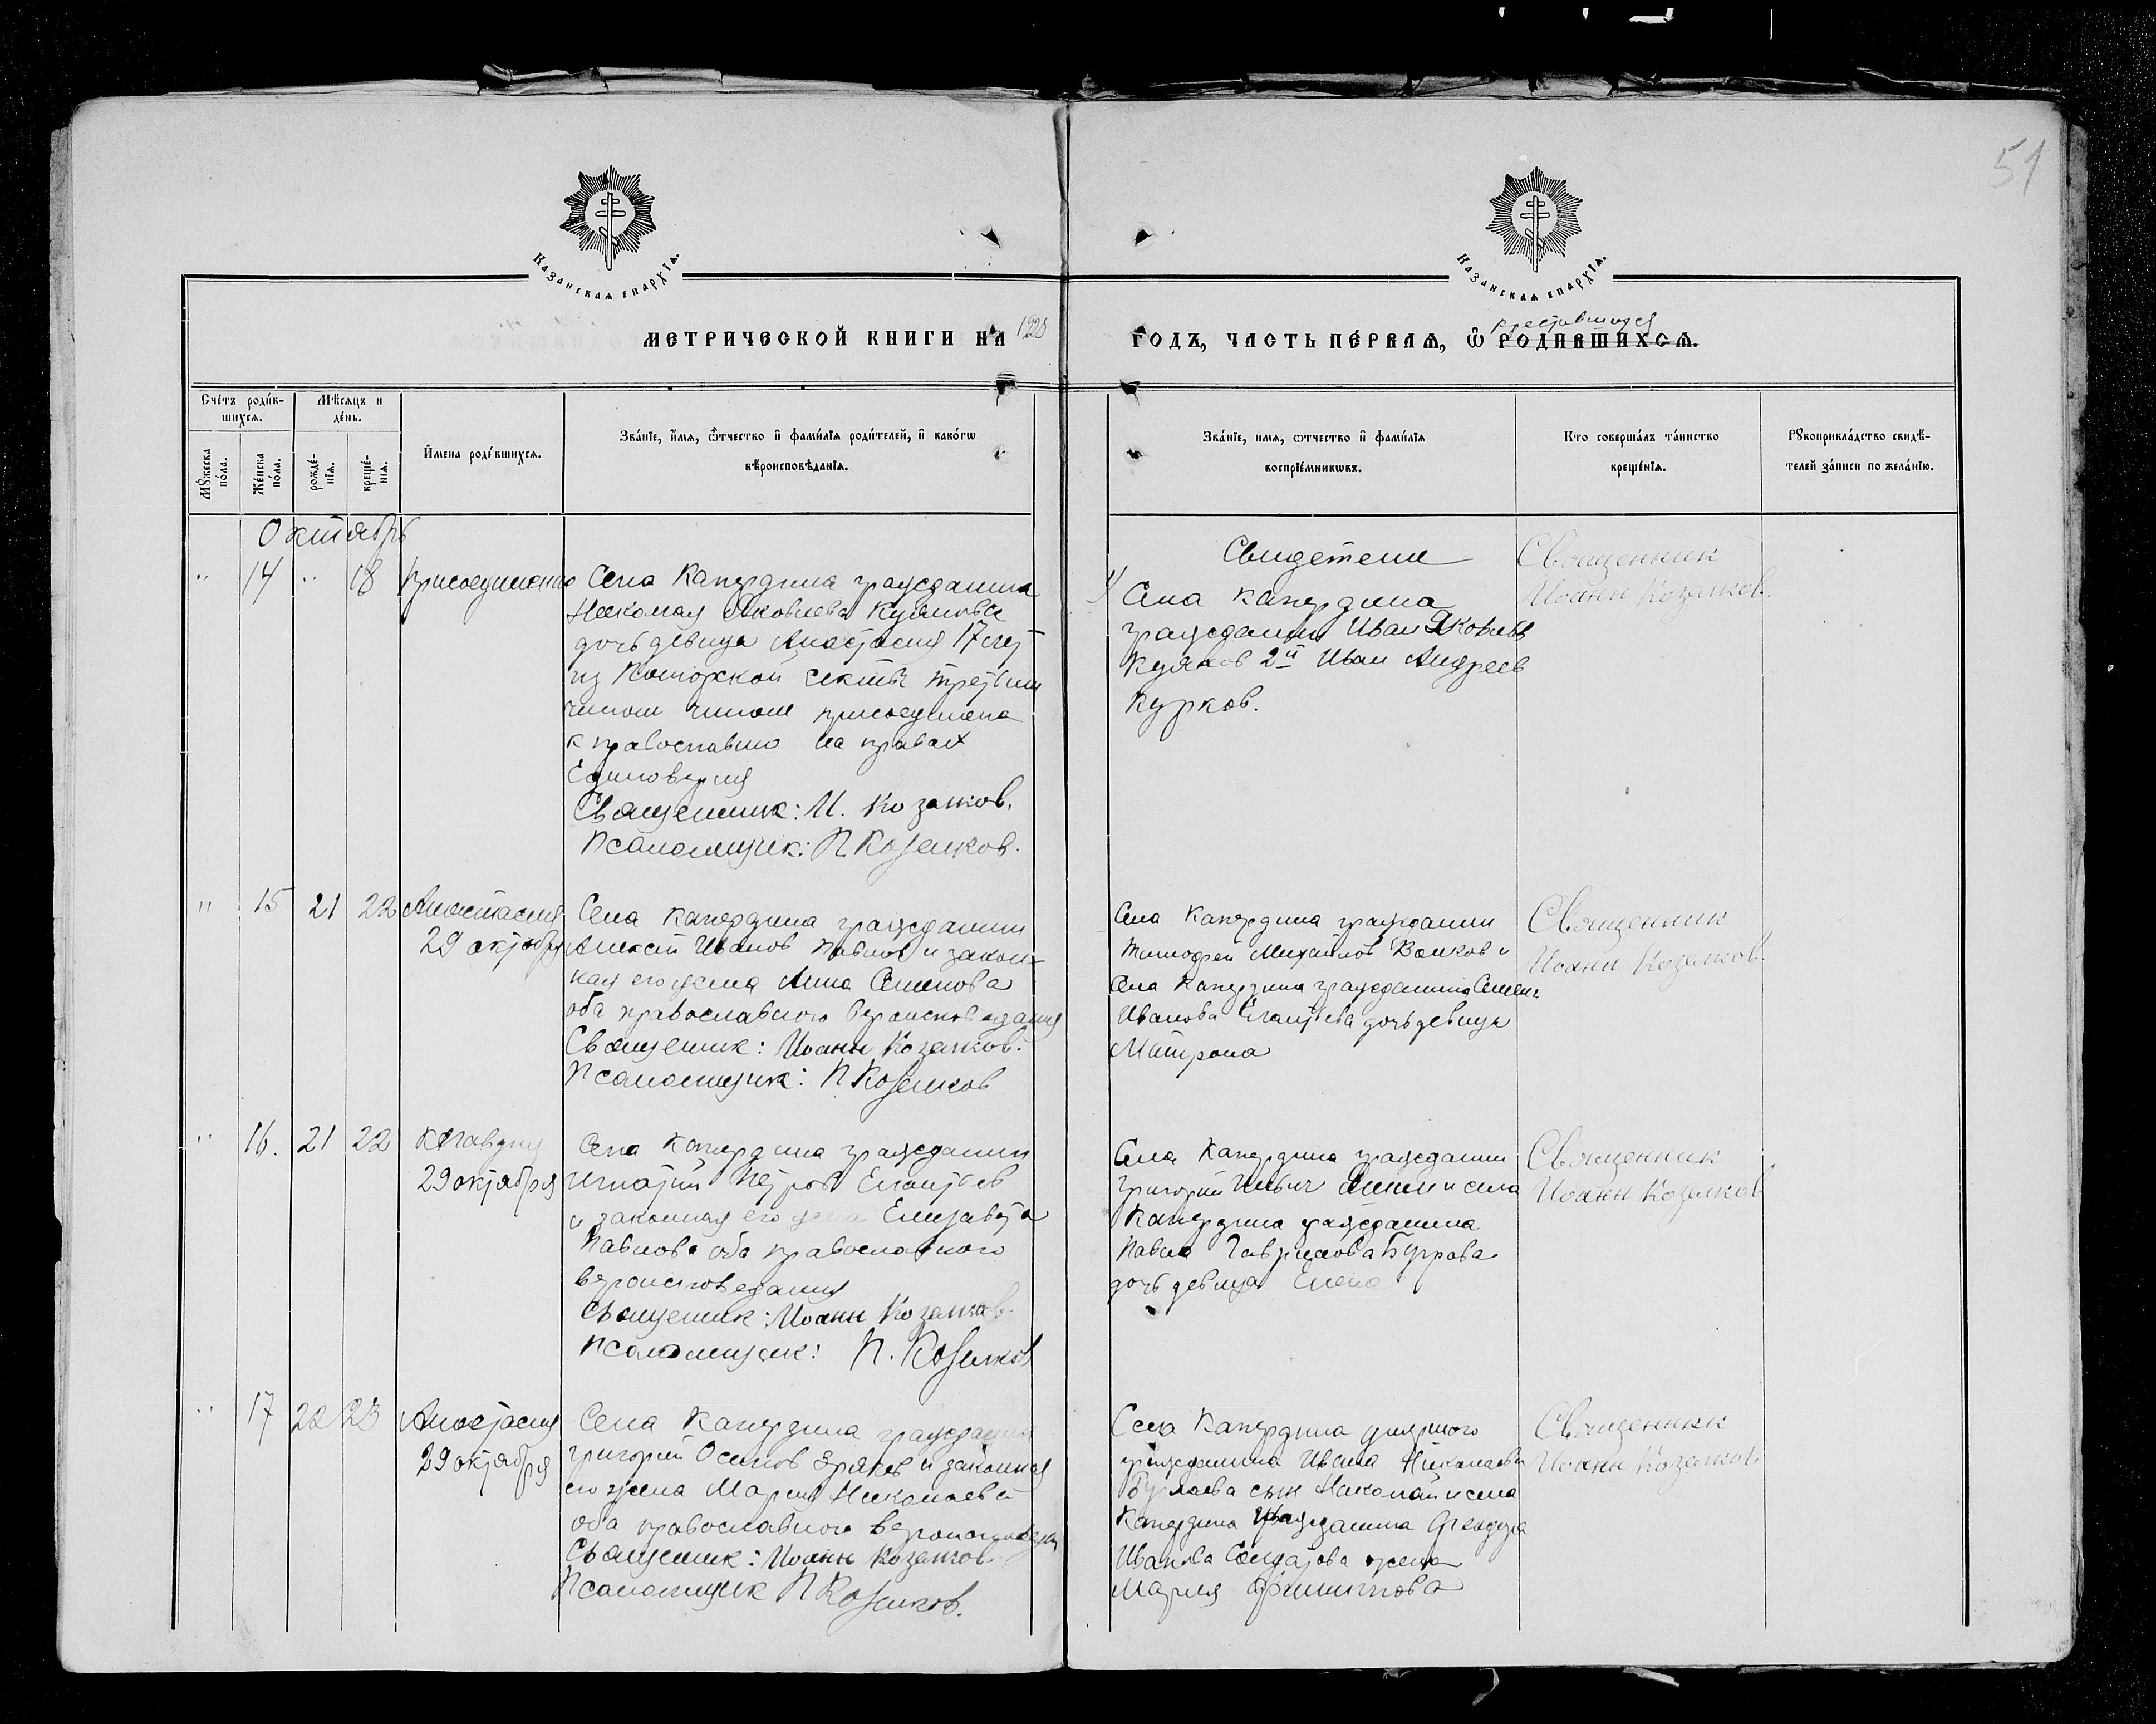 51
Казанскаѧ епархїѧ.
Казанскаѧ епархїѧ.
МЕТРИЧЕСКОЙ КНИГИ НА 1920
ГОДЪ, ЧАСТЬ ПЕ́РВАѦ, Ѿ РОДИВШИХСѦ.
крестившихся
Сче́тъ роди́в-
шихсѧ.
Мѣ́сѧцъ и
де́нь.
Мꙋ́жеска по́ла.
Же́нска по́ла.
рожде́-
нїѧ.
креще́-
нїѧ.
И҆мена роди́вшихсѧ.
Зва́нїе, и҆́мѧ, ѻ҆́тчество и҆ фами́лїѧ роди́телей, и҆ како́гѡ
вѣ́роисповѣ́данїѧ.
Зва́нїе, имѧ, ѻтчество и҆ фами́лїѧ
воспрїе́мникѡвъ.
Кто соверша́лъ та́инство
креще́нїѧ.
Рꙋкоприкла́дство свидѣ́-
телей за́писи по жела́нїю.
Октябрь
" 14 " 18 присоединение
Села Капердина гражданина
Николая Яковлева Куянова
дочь девица Анастасия 17 лет
из Поморской секты третьим
чином чином присоединена
к православию на правах
Единоверия
Священник: И. Козелков.
Псаломщик: П Козелков.
Свидетели
1) Села Капердина
гражданин Иван Яковлев
Куянов 2й Иван Андреев
Курков.
Священник
Иоанн Козелков.
" 15 21 22 Анастасия
29 октября
Села Капердина гражданин
Алексей Иванов Павлов и закон-
ная его жена Анна Семенова
оба православного вероисповедания
Священник: Иоанн Козелков.
Псаломщик: П Козелков
Села Капердина гражданин
Тимофей Михайлов Волков и
Села Капердина гражданина Семена
Иванова Елантьева дочь девица
Матрона
Священник
Иоанн Козелков.
" 16. 21 22 Клавдия
29 октября
Села Капердина гражданин
Игнатий Петров Елантьев
и законная его жена Елизавета
Павлова оба православного
вероисповедания
Священник: Иоанн Козелков.
Псаломщик: П. Козелков
Села Капердина гражданин
Григорий Ильич и села
Капердина гражданина
Павла Гаврилова Бугрова
дочь девица Елена
Священник
Иоанн Козелков
" 17 22 23 Анастасия
29 октября
Села Капердина гражданин
Григорий Осипов и законная
его жена Мария Николаева
оба православного вероисповедан
Священник: Иоанн Козелков.
Псаломщик П Козелков.
Села Капердина
гражданина Ивана Николаева
сын Николай и села
Капердина гражданина Феодора
Иванова Солдатова жена
Мария Филиппова
Священник
Иоанн Козелков